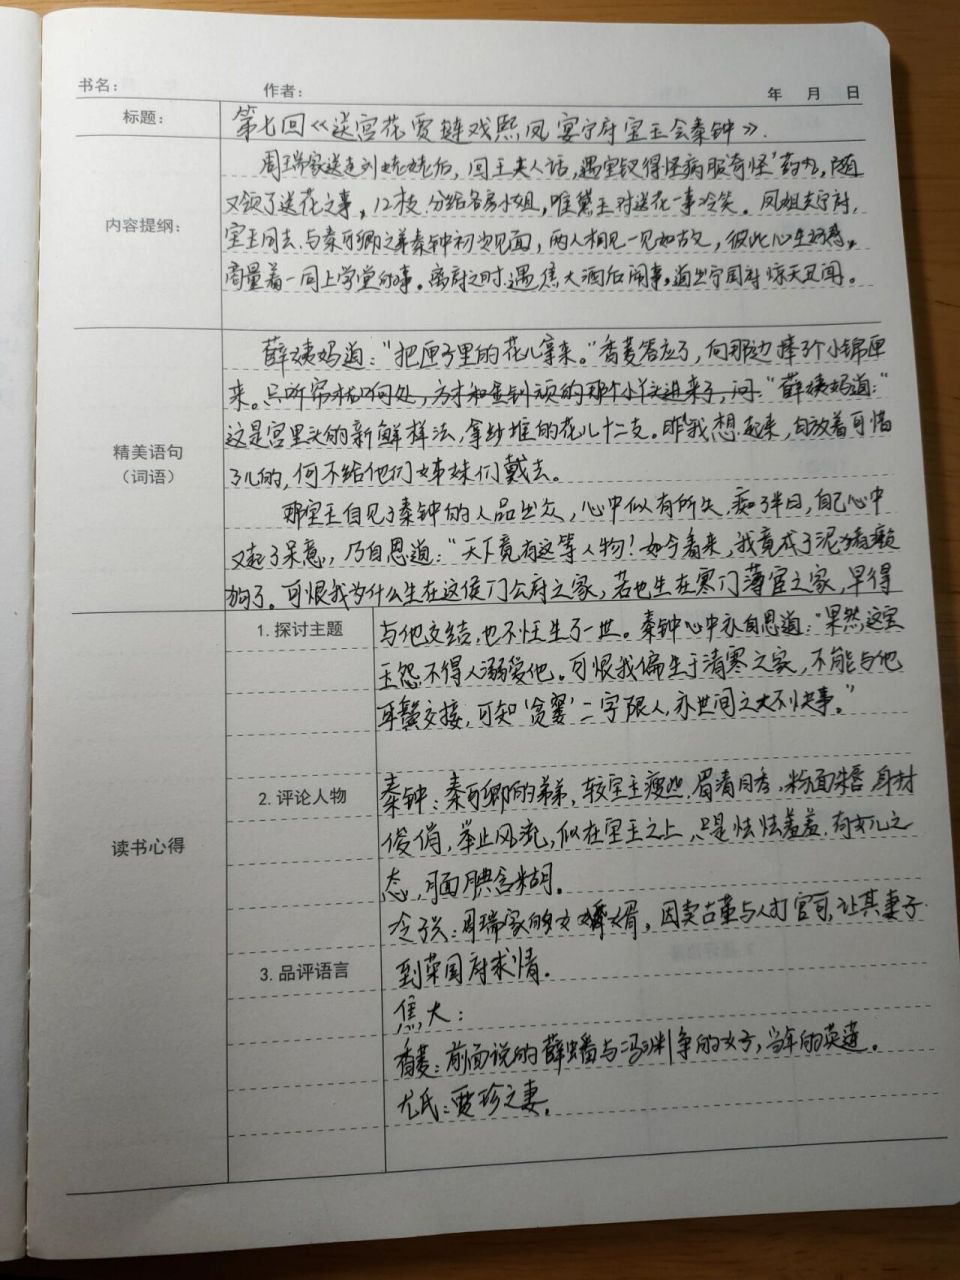 书名： 作者： 年 月 日
标题： 第七回《送宫花贾琏戏熙凤 宴宁府宝玉会秦钟》.
内容提纲：
周瑞家送走刘姥姥后，回王夫人话，遇宝钗得怪病服奇怪'药丸，随
又领了送花之事，12枝.分给各房小姐，唯黛玉对送花一事冷笑。凤姐去宁府，
宝玉同去.与秦可卿之弟秦钟初次见面，两人相见一见如故，彼此心生
商量着一同上学堂的事。离府之时.遇焦大酒后闹事，道出宁国府惊天丑闻。
精美语句
（词语）
薛姨妈道：“把匣子里的花儿拿来。”香菱答应了，向那边捧了个小锦匣
来。方才和金钏顽的那个小丫头进来了，问：“薛姨妈道：“
这是宫里头的新鲜样法，拿纱堆的花儿十二支。昨我想起来，白放着可惜
了儿的，何不给他们姊妹们戴去。
那宝玉自见了秦钟的人品出众，心中似有所失，痴了半日，自己心中
又起了呆意，乃自思道：“天下竟有这等人物！如今看来，我竟成了泥猪癞
狗了。可恨我为什么生在这侯门公府之家，若也生在寒门薄宦之家，早得
读书心得
1.探讨主题
与他交结，也不枉生了一世。秦钟心中亦自思道：“果然这宝
玉怨不得人溺爱他。可恨我偏生于清寒之家，不能与他
耳鬓交接，可知‘贪窭’二字限人，亦世间之大不快事。”
2.评论人物
秦钟：秦可卿的弟弟，较宝玉瘦些.眉清目秀，粉面朱唇，身材
俊俏，举止风流，似在宝玉之上，只是怯怯羞羞，有女儿之
态，腼腆含糊。
冷子兴：周瑞家的女婿，因卖古董与人打官司，让其妻子
3.品评语言
到荣国府求情。
焦大：
香菱：前面说的薛蟠与冯渊争的女子，当年的英莲。
尤氏：贾珍之妻。